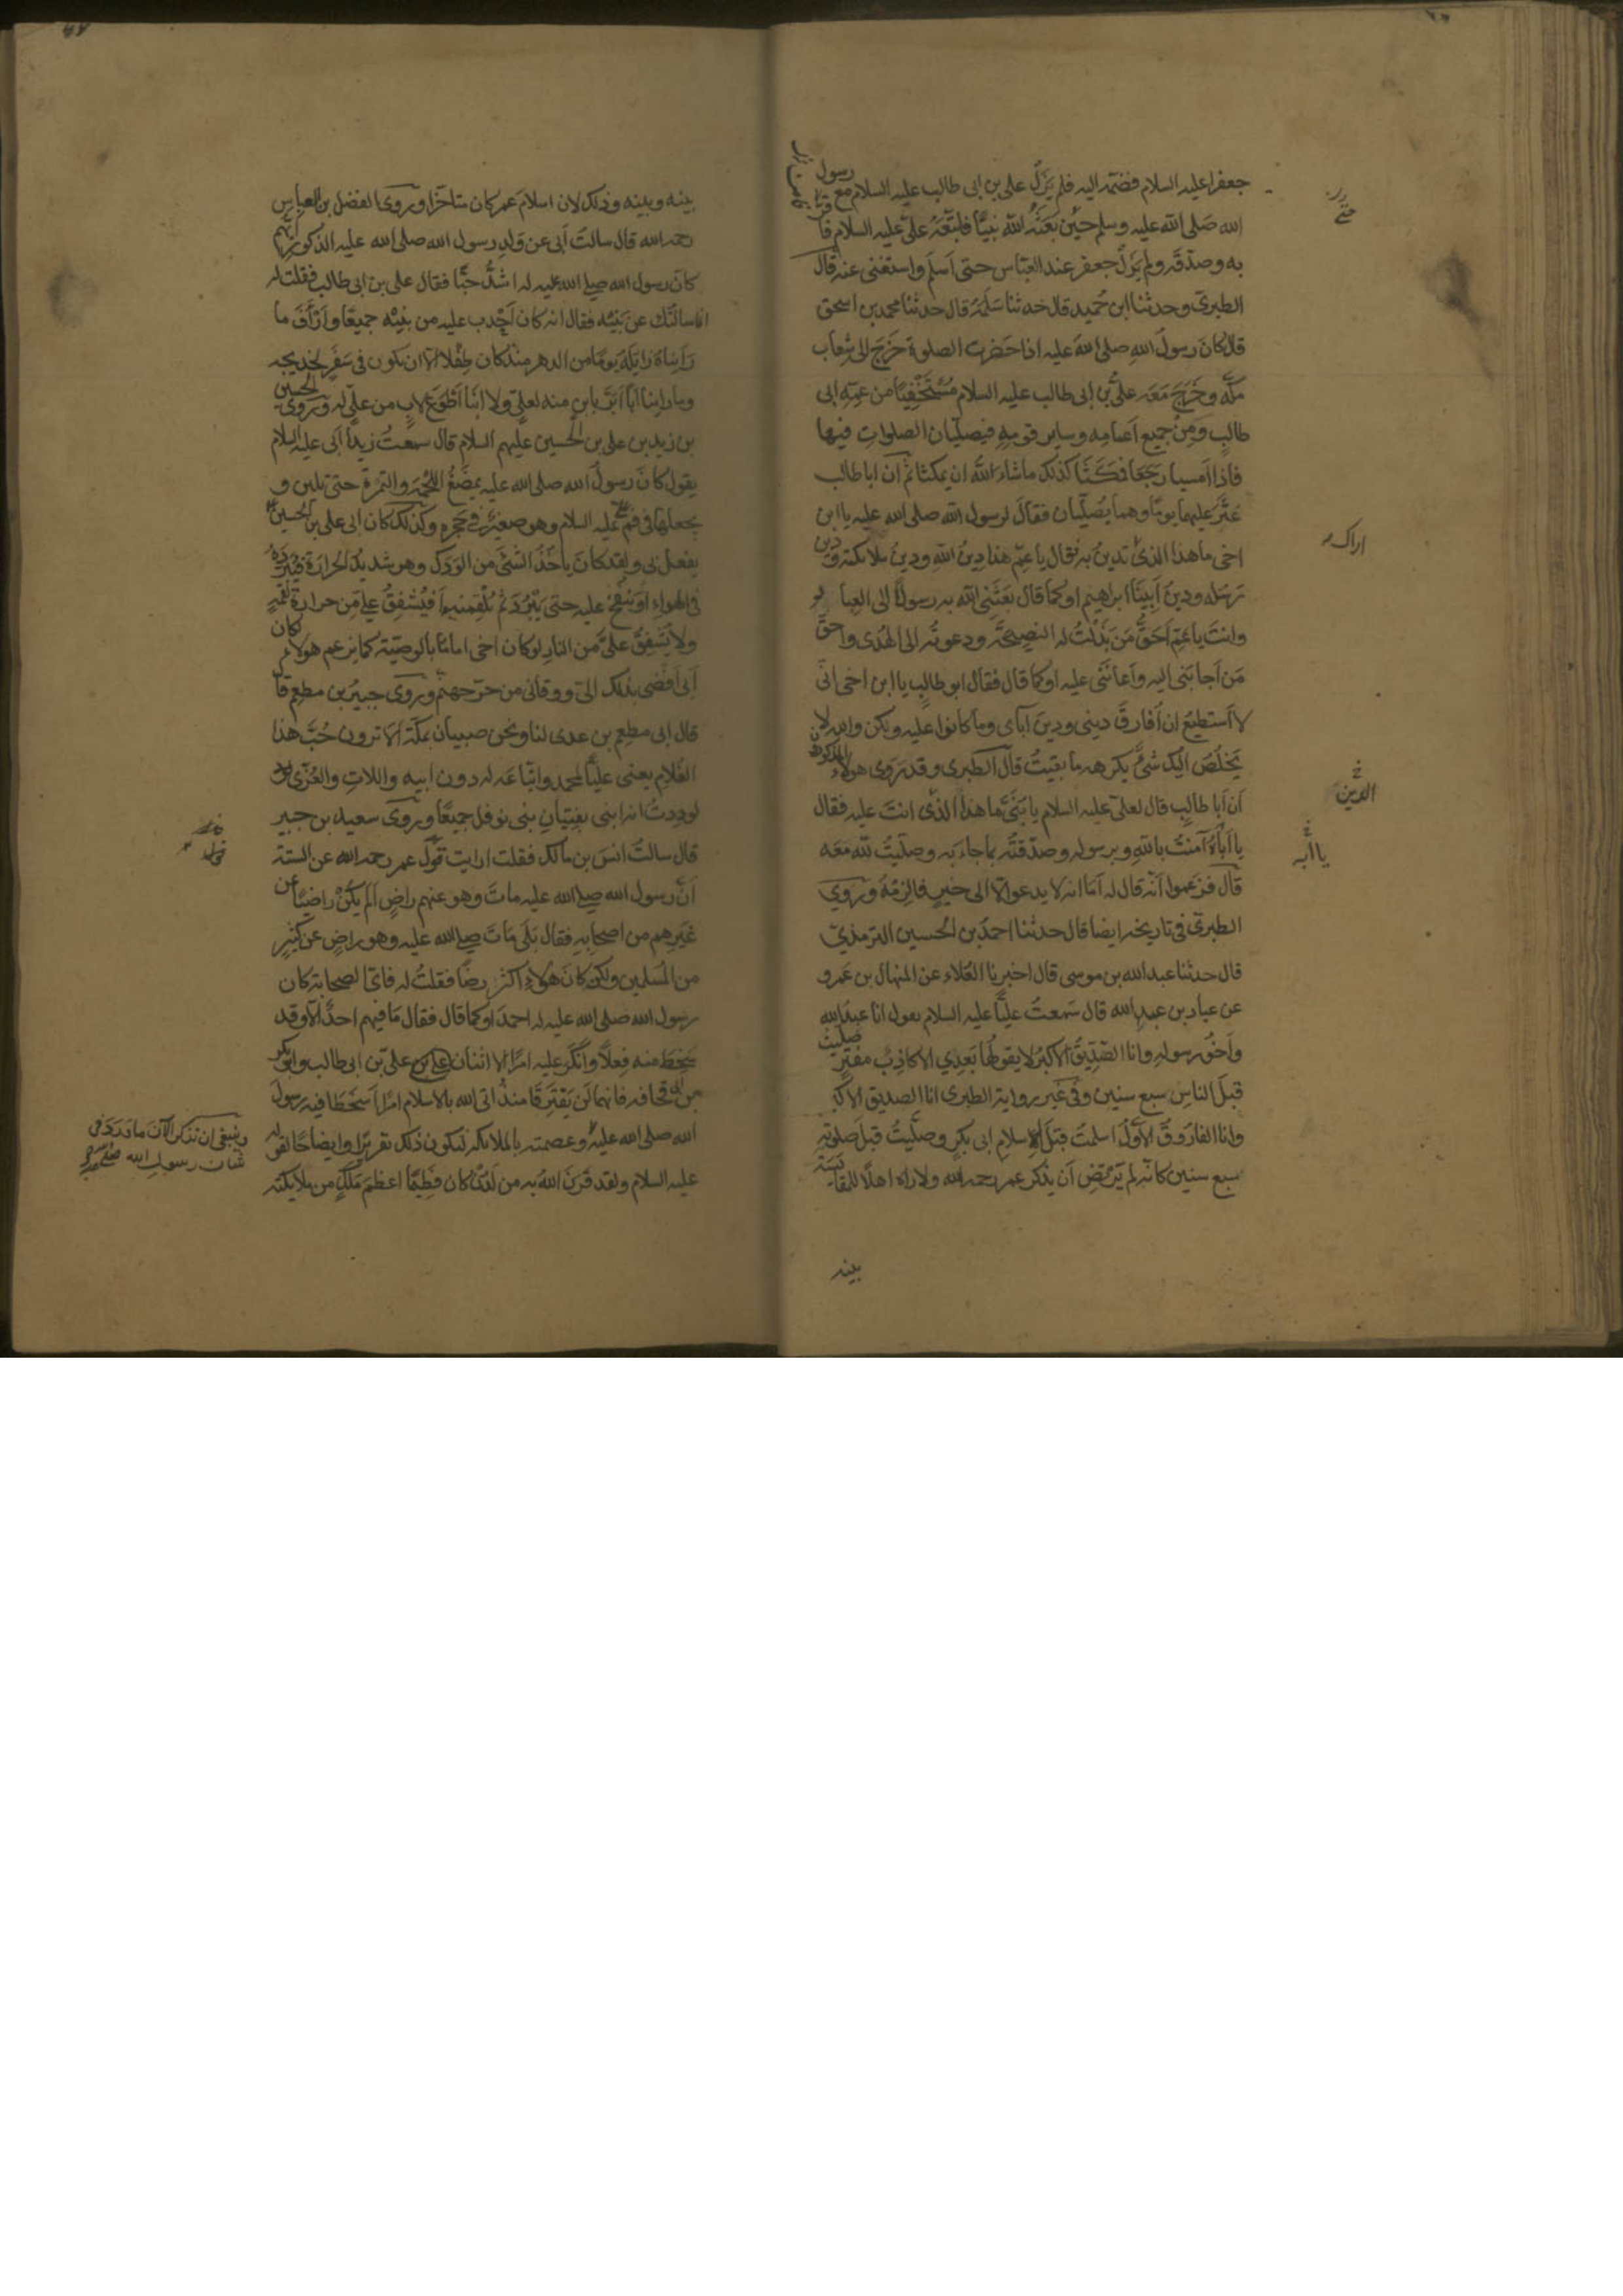 جعفرا عليه السلام فضمه اليه فلم يزل علي بن ابي طالب عليه السلام مع رسول
الله صلى الله عليه وسلم حين بعثه الله نبيا فاتبعه علي عليه السلام فا
به وصدقه ولم يزل جعفر عند العباس حتى اسلم واستغنى عنه قال
الطبري وحدثنا ابن حميد قال حدثنا سلمة قال حدثنا محمد بن اسحق
قال كان رسول الله صلى الله عليه اذا حضرت الصلوة خرج الى شعاب
مكة وخرج معه علي بن ابي طالب عليه السلام مستخفيا من عمه ابي
طالب ومن جميع اعمامه وساير قومه فيصليان الصلوات فيها
فاذا امسيا رجعا فمكثا كذلك ما شاء الله ان يمكثا ثم ان ابا طالب
عثر عليهما يوما وهما يصليان فقال لرسول الله صلى الله عليه يا ابن
اخي ما هذا الذي تدين به فقال يا عم هذا دين الله ودين ملائكته ودين
رسله ودين ابينا ابراهيم او كما قال بعثني الله به رسولا الى العبا د
وانت يا عم احق من بذلت له النصيحة ودعوته الى الهدى واحق
من اجابني اليه واعانني عليه او كما قال فقال ابو طالب يا ابن اخي اني
لا استطيع ان افارق ديني ودين آباى وما كانوا عليه ولكن والله لا
يخلص اليك شئ تكرهه ما بقيت قال الطبري وقد روى هولاء المذكورون
ان ابا طالب قال لعلي عليه السلام يا بني ما هذا الذي انت عليه فقال
يا اباه آمنت بالله وبرسوله وصدقته بما جاء به وصليت لله معه
قال فزعموا انه قال له اما انه لا يدعو الا الى خير فالزمه وروي
الطبري في تاريخه ايضا قال حدثنا احمد بن الحسين الترمذي
قال حدثنا عبد الله بن موسى قال اخبرنا العلاء عن المنهال بن عمرو
عن عباد بن عبد الله قال سمعت عليا عليه السلام يقول انا عبد الله
واخو رسوله وانا الصديق الاكبر لا يقولها بعدي الا كاذب مفتر صليت
قبل الناس سبع سنين وفي غير رواية الطبري انا الصديق الاكبر
وانا الفاروق الاول اسلمت قبل اسلام ابي بكر وصليت قبل صلوته
سبع سنين كانه لم يرتض ان يذكر عمر رحمه الله ولا رآه اهلا للمقايسة
بينه
اراك
الدين
يا ابه
بينه وبينه وذلك لان اسلام عمر كان متاخرا وروى الفضل بن العباس
رحمه الله قال سالت ابي عن ولد رسول الله صلى الله عليه الذكور ايهم
كان رسول الله صلى الله عليه له اشد حبا فقال علي بن ابي طالب فقلت له
انا سالتك عن بنيه فقال انه كان احدب عليه من بنيه جميعا وارأف ما
رايناه زايله يوما من الدهر منذ كان طفلا الا ان يكون في سفر لخديجة
وما راينا ابا ابر بابن منه لعلي ولا ابنا اطوع لاب من علي له وروى الحسين
بن زيد بن علي بن الحسين عليهم السلام قال سمعت زيدا ابي عليه السلام
يقول كان رسول الله صلى الله عليه يمضغ اللحمة والتمرة حتى تلين و
يجعلها في فم علي عليه السلام وهو صغير في حجره وكذلك كان ابي علي بن الحسين
يفعل بي ولقد كان ياخذ الشئ من الورك وهو شديد الحرارة فيبرده
في الهواء او ينفخ عليه حتى يبرد ثم يلقمنيه افيشفق علي من حرارة لقمة
ولا يشفق علي من النار لو كان اخي اماما بالوصية كما يزعم هولاء لكان
ابي افضى بذلك الي ووقاني من حر جهنم وروى جبير بن مطعم قال
قال ابي مطعم بن عدي لنا ونحن صبيان بمكة الا ترون حب هذا
الغلام يعني عليا لمحمد واتباعه له دون ابيه واللات والعزى
لوددت انه ابني بفتيان بني نوفل جميعا وروى سعيد بن جبير
قال سالت انس بن مالك فقلت ارايت قول عمر رحمه الله عن الستة
ان رسول الله صلى الله عليه مات وهو عنهم راض الم يكن راضيا عن
غيرهم من اصحابه فقال بلى مات صلى الله عليه وهو راض عن كثير
من المسلمين ولكن كان هولاء اكثر رضا فقلت له فاي الصحابة كان
رسول الله صلى الله عليه له احمد او كما قال فقال ما فيهم احد الا وقد
سخط منه فعلا وانكر عليه امرا الا اثنان علي بن ابي طالب وابو بكر
بن ابي قحافة فانهما لم يقترفا منذ اتى الله بالاسلام امرا اسخطا فيه رسول
الله صلى الله عليه وعصمته بالملائكة ليكون ذلك تقريرا وايضاحا لقوله
عليه السلام ولقد قرن الله به من لدن كان فطيما اعظم ملك من ملايكته
وينبغي ان نذكر الآن ما ورد في
شان رسول الله